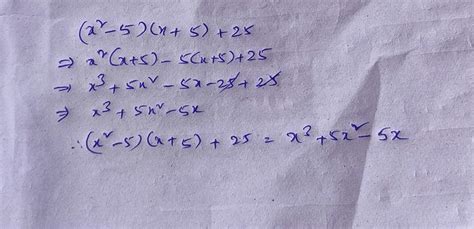 (x² - 5) (x + 5) + 25
⇒ x² (x+5) - 5(x+5) + 25
⇒ x³ + 5x² - 5x - 25 + 25
⇒ x³ + 5x² - 5x
∴ (x² - 5) (x + 5) + 25 = x³ + 5x² - 5x